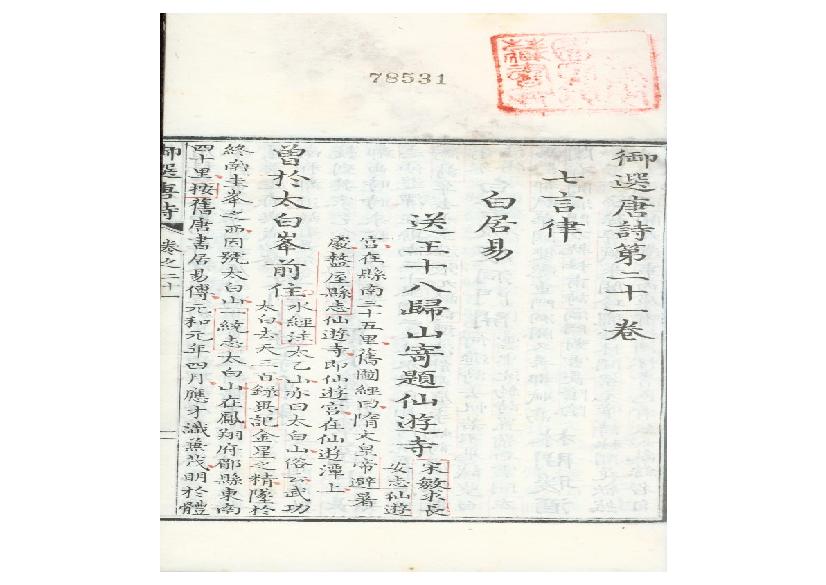 78531
御選唐詩第二十一卷
七言律
白居易
送王十八歸山寄題仙遊寺
宋敏求長
安志仙遊
宫在縣南三十五里舊圖經曰隋文皇帝避暑
處盩厔縣志仙遊寺即仙遊宫在仙遊潭上
曽於太白峯前住
水經注太乙山亦曰太白山俗云武功
太白去天三百録異記金星之精墜於
終南圭峯之西因號太白山一統志太白山在鳳翔府郿縣東南
四十里按舊唐書居易傳元和元年四月應才識兼茂明於體
御選唐詩
卷之二十一
一